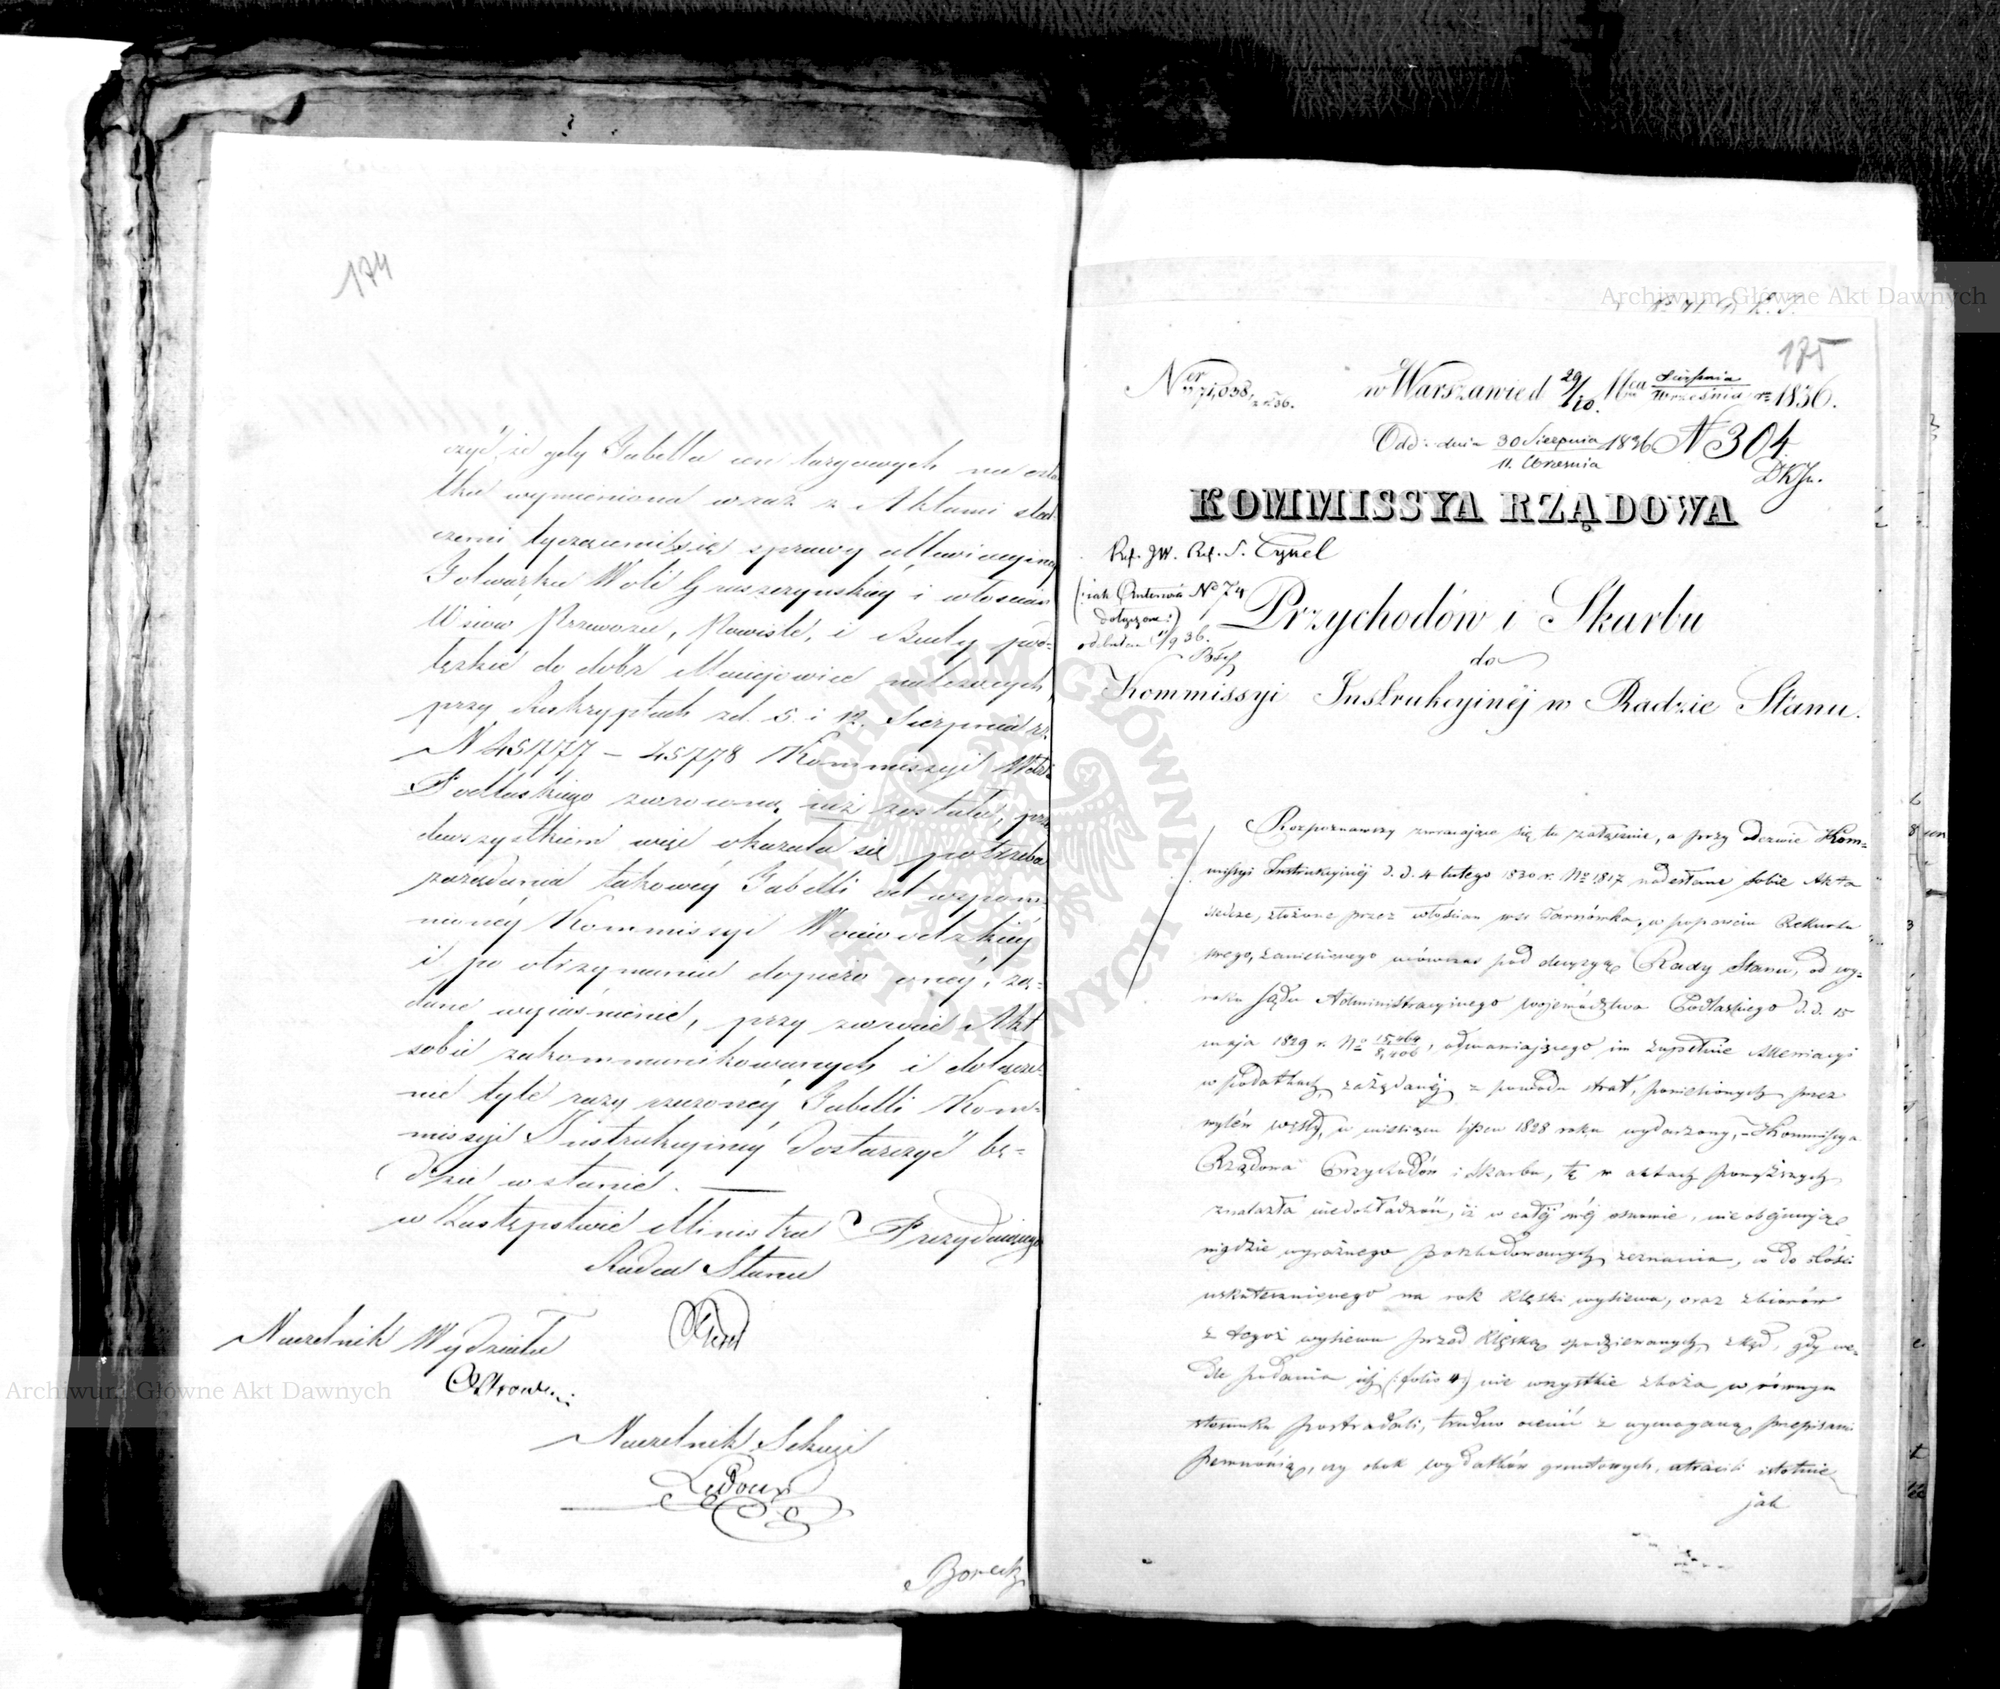 174
czyć, że gdy Tabella cen targowych na osta
tku wymieniona wraz z Aktami śled-
czemi tyczącemi się sprawy allewiacyjney
Folwarku Woli Gruszczyńskiéy i włościan
Wsiów Przewozu, Pawiśle, i Budy pod-
łęzkie do dóbr Maciejowice należących,
przy Reskryptach z d. 5. i 12. Sierpnia r. z.
N 45777 – 45778 Kommissyi Wdztw
Podlaskiego zwrocona, już została, prze
dewszystkiem więc okazała się potrzeba
zażądania takowéy Tabelli od wspom-
nionéy Kommissyi Wojewodzkiéy
i po otrzymaniu dopiero onéy, żą-
dane wyjaśnienie, przy zwrocie Akt
sobie zakommunikowanych i dołącze-
nie tyle razy rzeczonéy Tabelli Kom-
missyi Instrukcyinéy dostarczyć bę-
dzie w stanie.
w Zastępstwie Ministra Prezydującego
Radca Stanu
Naczelnik Wydziału
Naczelnik Sekcyi
Ledoux
Archiwum Główne Akt Dawnych
175
Ner 71,038/236. w Warszawie d 29/10. Mca Sierpnia/Września r. 1836.
Odd: dnia 30 Sierpnia/11. Września 1836 N 304
KOMMISSYA RZĄDOWA
Ref. JW. Ref. S. Cyrel
Przychodów i Skarbu
do
Kommissyi Instrukcyinéj w Radzie Stanu.
Rozpoznawszy zwracające się tu załącznie, a przy Odezwie Kom-
missyi Instrukcyinéj d. d. 4 lutego 1830 r. No 1817 nadesłane sobie Akta
śledcze, złożone przez włościan wsi Tarnówka, w poparciu Rekursu
swego, zaniesionego wówczas pod decyzyą Rady Stanu, od wy-
roku Sądu Administracyinego Województwa Podlaskiego d. d. 15
maja 1829 r. No 15,464/8,406, odmawiającego im zupełnie Allewiacyi
w podatkach, zażądanéj z powodu strat, poniesionych przez
wylew Wisły, w miesiącu lipcu 1828 roku wydarzony, – Kommissya
Rządowa Przychodów i Skarbu, tę w aktach powyższych
znalazła niedokładność, iż w całéj swéj osnowie, nie obejmują
nigdzie wyraźnego poszkodowanych zeznania, co do ilości
uskutecznionego na rok klęski wysiewu, oraz zbiorów
z tegoż wysiewu przed klęską spodziewanych, zkąd, gdy we-
dle podania ich (: folio 4 :) nie wszystkie zboża w równym
stosunku postradali, trudno ocenić z wymaganą przepisami
pewnością, czy obok wydatków gruntowych, utracili istotnie
jak
Archiwum Główne Akt Dawnych
ARCHIWUM GŁÓWNE AKT DAWNYCH